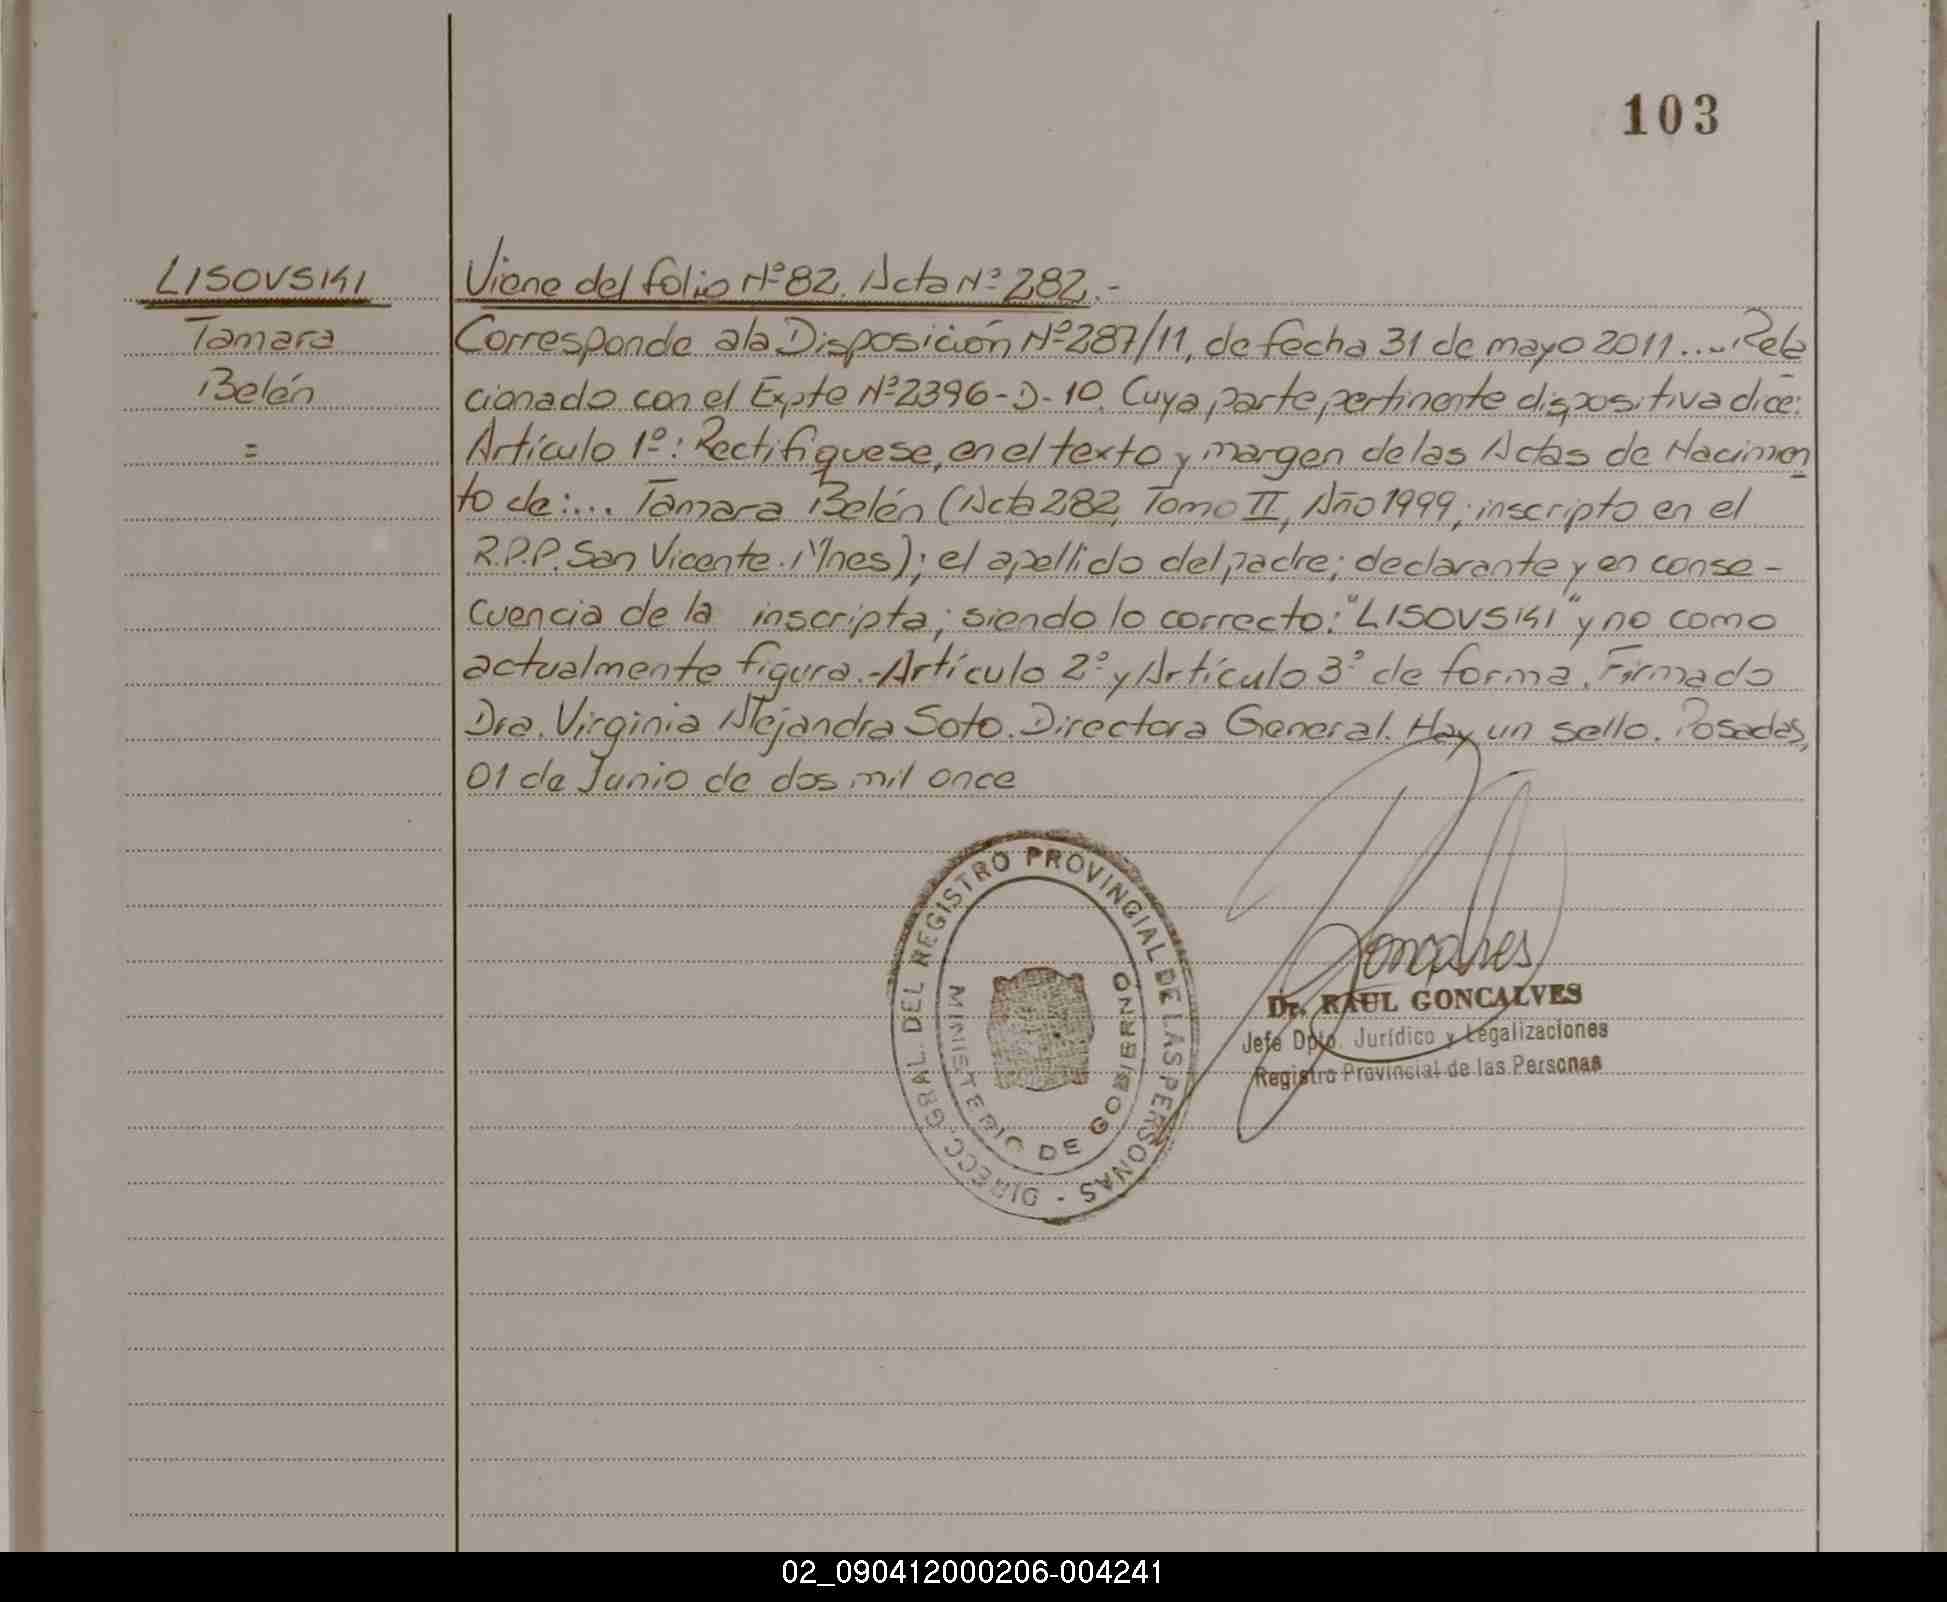 103
LISOVSKI
Tamara
Belén
=
Viene del folio Nº 82. Acta Nº 282.-
Corresponde a la Disposición Nº 287/11, de fecha 31 de mayo 2011.... Rela
cionado con el Expte Nº 2396-D-10. Cuya parte pertinente dispositiva dice:
Artículo 1º: Rectifiquese, en el texto y margen de las Actas de Nacimien
to de:... Tamara Belén (Acta 282, Tomo II, Año 1999, inscripto en el
R.P.P. San Vicente. Mnes); el apellido del padre; declarante y en conse-
cuencia de la inscripta; siendo lo correcto: "LISOVSKI" y no como
actualmente figura.- Artículo 2º y Artículo 3º de forma. Firmado
Dra. Virginia Alejandra Soto. Directora General. Hay un sello. Posadas,
01 de Junio de dos mil once
DIRECC. GRAL. DEL REGISTRO PROVINCIAL DE LAS PERSONAS -
MINISTERIO DE GOBIERNO
Goncalves
Dr. RAUL GONCALVES
Jefe Dpto. Jurídico y Legalizaciones
Registro Provincial de las Personas
02_090412000206-004241